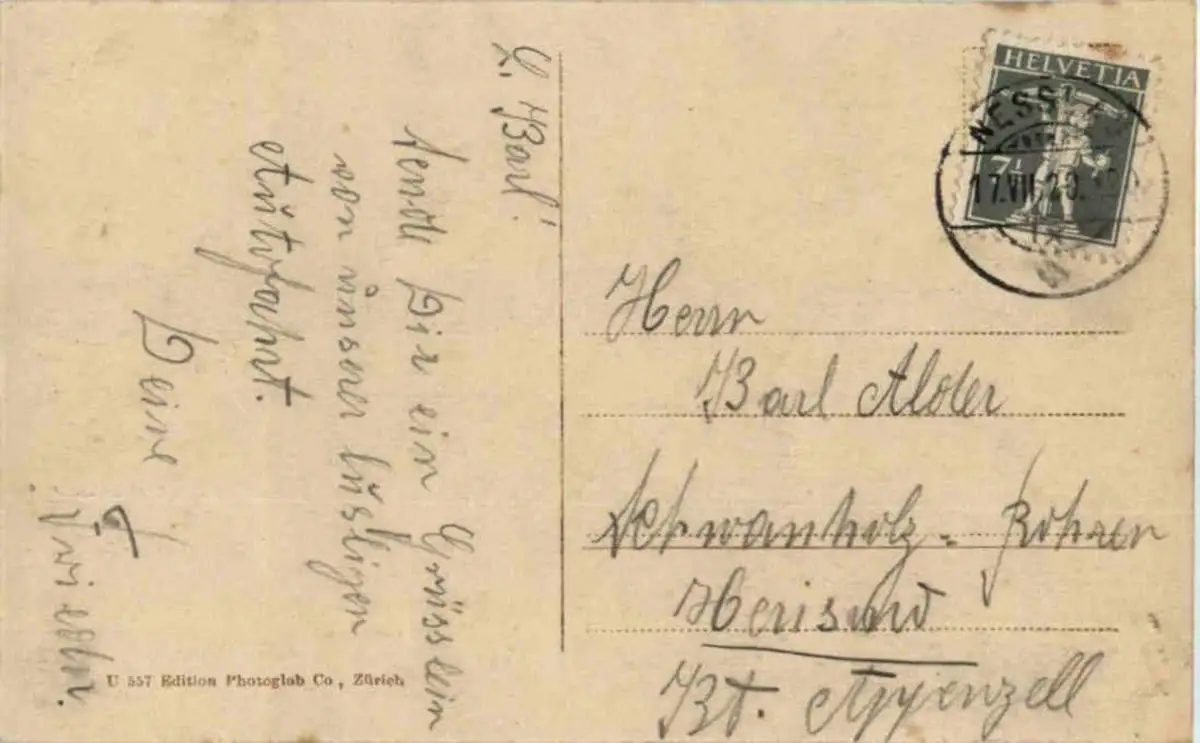 L. Karl!
sende Dir ein Grüsslein
von unserer lustigen
Autofahrt.
Deine
HELVETIA
17.VII.20.
Herrn
Karl Alder
Schwanholz - Rohren
Herisau
Kt. Appenzell
U 557 Edition Photoglob Co, Zürich